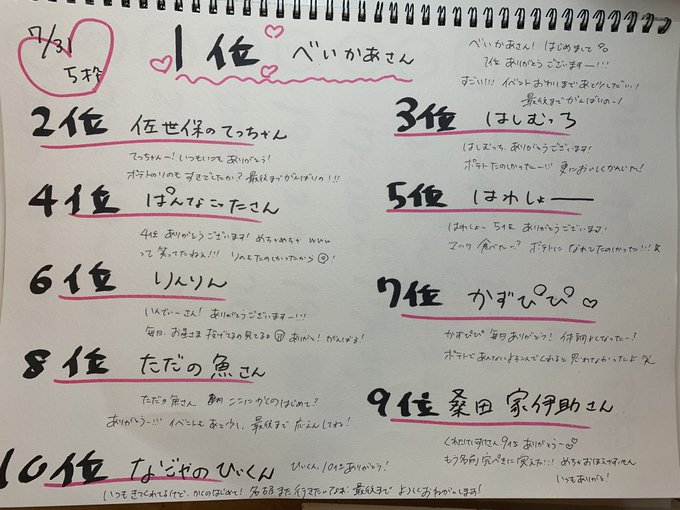 7/31
5枠
1位 べいかあさん
べいかあさん! はじめまして
1位 ありがとうございますー!!!
すごい!!! イベントおわりまであと少しだい!
最後までがんばるのー!
2位 佐世保のてっちゃん
てっちゃんー! いつもいつも ありがとう!
ポテトのりもの すきでしたか? 最後までがんばるの!!!
3位 はしむっち
はしむっち ありがとうございます!
ポテトたのしかったー!!! 更においしくかんじた!
4位 ぱんなこったさん
4位 ありがとうございます! めちゃめちゃ www
って笑ってたねぇ!!! りのもたのしかったから !
5位 はわしょーー
はわしょー 5位 ありがとうございます!
マック 食べたー? ポテトに なれてたのしかった!!!
6位 りんりん
いんでぃーさん! ありがとうございますー!!!
毎日、お星さま 投げてるの見てるよ ありがと! がんばる!
7位 かずぴぴ♡
かずぴぴ 毎日ありがとう!
ポテトであんなによろこんでくれると思わなかったよ
8位 ただの魚さん
ただの魚さん ここにかくのはじめて?
ありがとうー!!! イベントも あと少し、最後まで 応えんしてね!
9位 桑田 家伊助さん
9位 ありがとうー♡
もう名前 完ぺきに 覚えた!! めちゃおぼえやすいもん
いつもありがと!
10位 なごやのひぃくん
ひぃくん、10位ありがとう!
いつもきてくれてるけど、かくのはじめて! 名古屋また行きたいなぁ! 最後まで よろしくおねがいします!